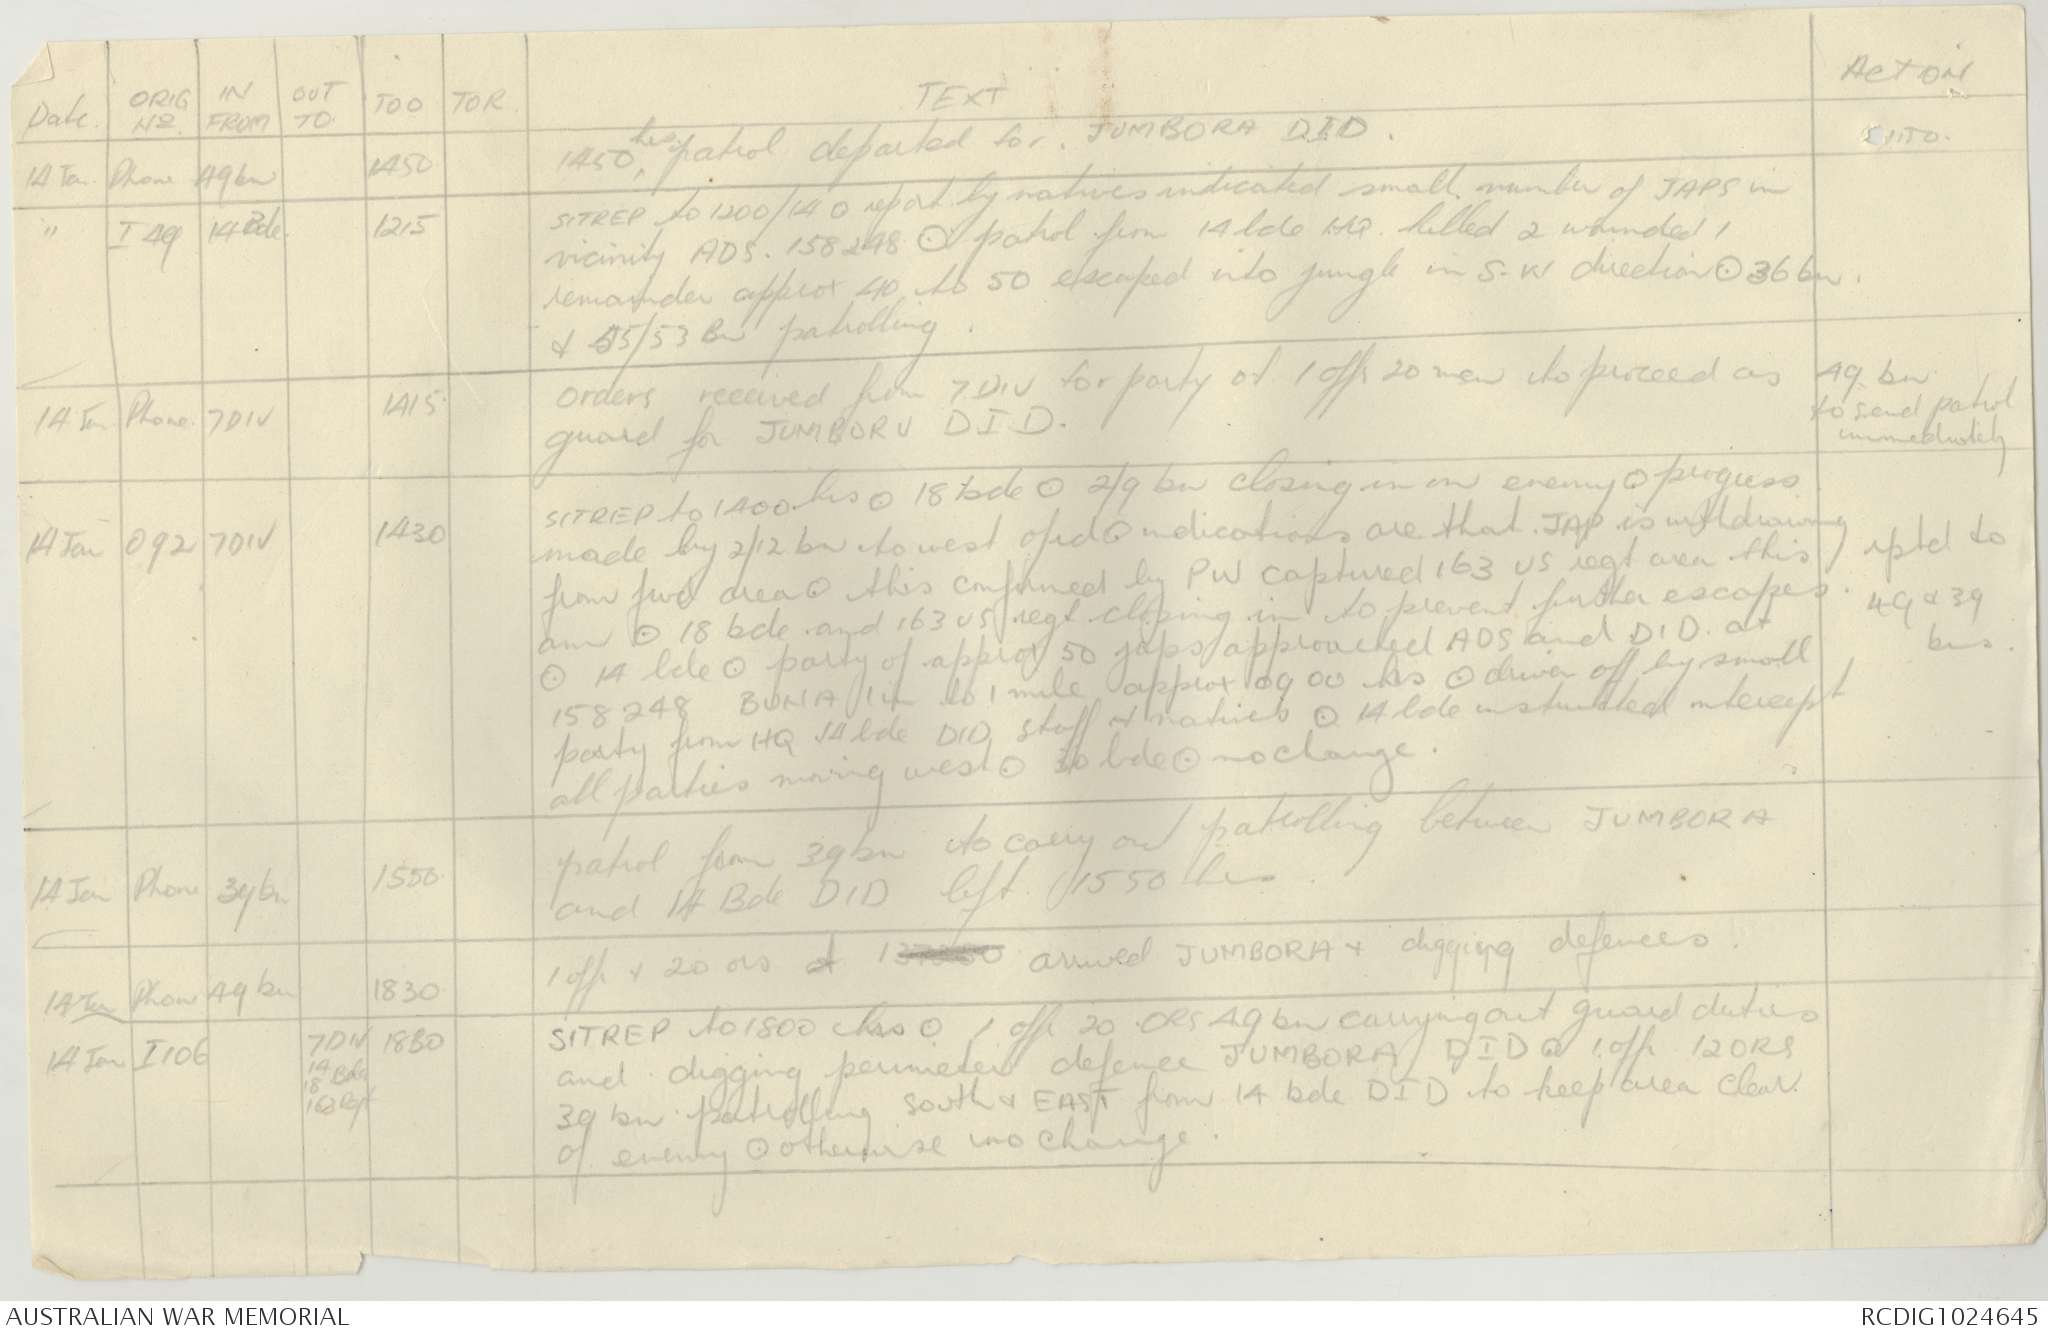 Date. ORIG No. IN FROM OUT TO. TOO TOR TEXT ACTION
14 Jan. Phone 49 bn 1450 1450, hrs patrol departed for. JUMBORA DID.
" I 49 14 Bde. 1215 SITREP to 1200/14 ⊙ report by natives indicated small number of JAPS in
vicinity ADS. 158248 ⊙ patrol from 14 bde HQ. killed 2 wounded 1
remainder approx 40 to 50 escaped into jungle in S-W direction ⊙ 36 bn.
& 55/53 Bn patrolling.
14 Jan Phone. 7 DIV 1415 Orders received from 7 DIV for party of 1 offr 20 men to proceed as 49 bn
guard for JUMBORU DID. to send patrol
immediately
14 Jan O92 7 DIV 1430 SITREP to 1400 hrs ⊙ 18 bde ⊙ 2/9 bn closing in on enemy ⊙ progress
made by 2/12 bn to west of rd ⊙ indications are that JAP is withdrawing rptd to
from fwd area ⊙ this confirmed by PW captured 163 US regt area this 49 & 39
am ⊙ 18 bde and 163 US regt closing in to prevent further escapes. bns.
⊙ 14 bde ⊙ party of approx 50 japs approached ADS and DID. at
158248 BUNA 1 in to 1 mile approx 0900 hrs ⊙ driven off by small
party from HQ 14 bde DID staff & natives ⊙ 14 bde instructed intercept
all parties moving west ⊙ 30 bde ⊙ no change.
14 Jan Phone 39 bn 1550 patrol from 39 bn to carry out patrolling between JUMBORA
and 14 Bde DID left 1550 hrs.
14 Jan Phone 49 bn 1830 1 offr & 20 ors arrived JUMBORA & digging defences.
14 Jan I106 7 DIV 1830 SITREP to 1800 hrs ⊙ 1 offr 20 ORS 49 bn carrying out guard duties
14 Bde and digging perimeter defence JUMBORA DID ⊙ 1 offr 12 ORS
18 " 39 bn patrolling SOUTH & EAST from 14 bde DID to keep area clear.
163 Regt of enemy ⊙ otherwise no change.
AUSTRALIAN WAR MEMORIAL RCDIG1024645